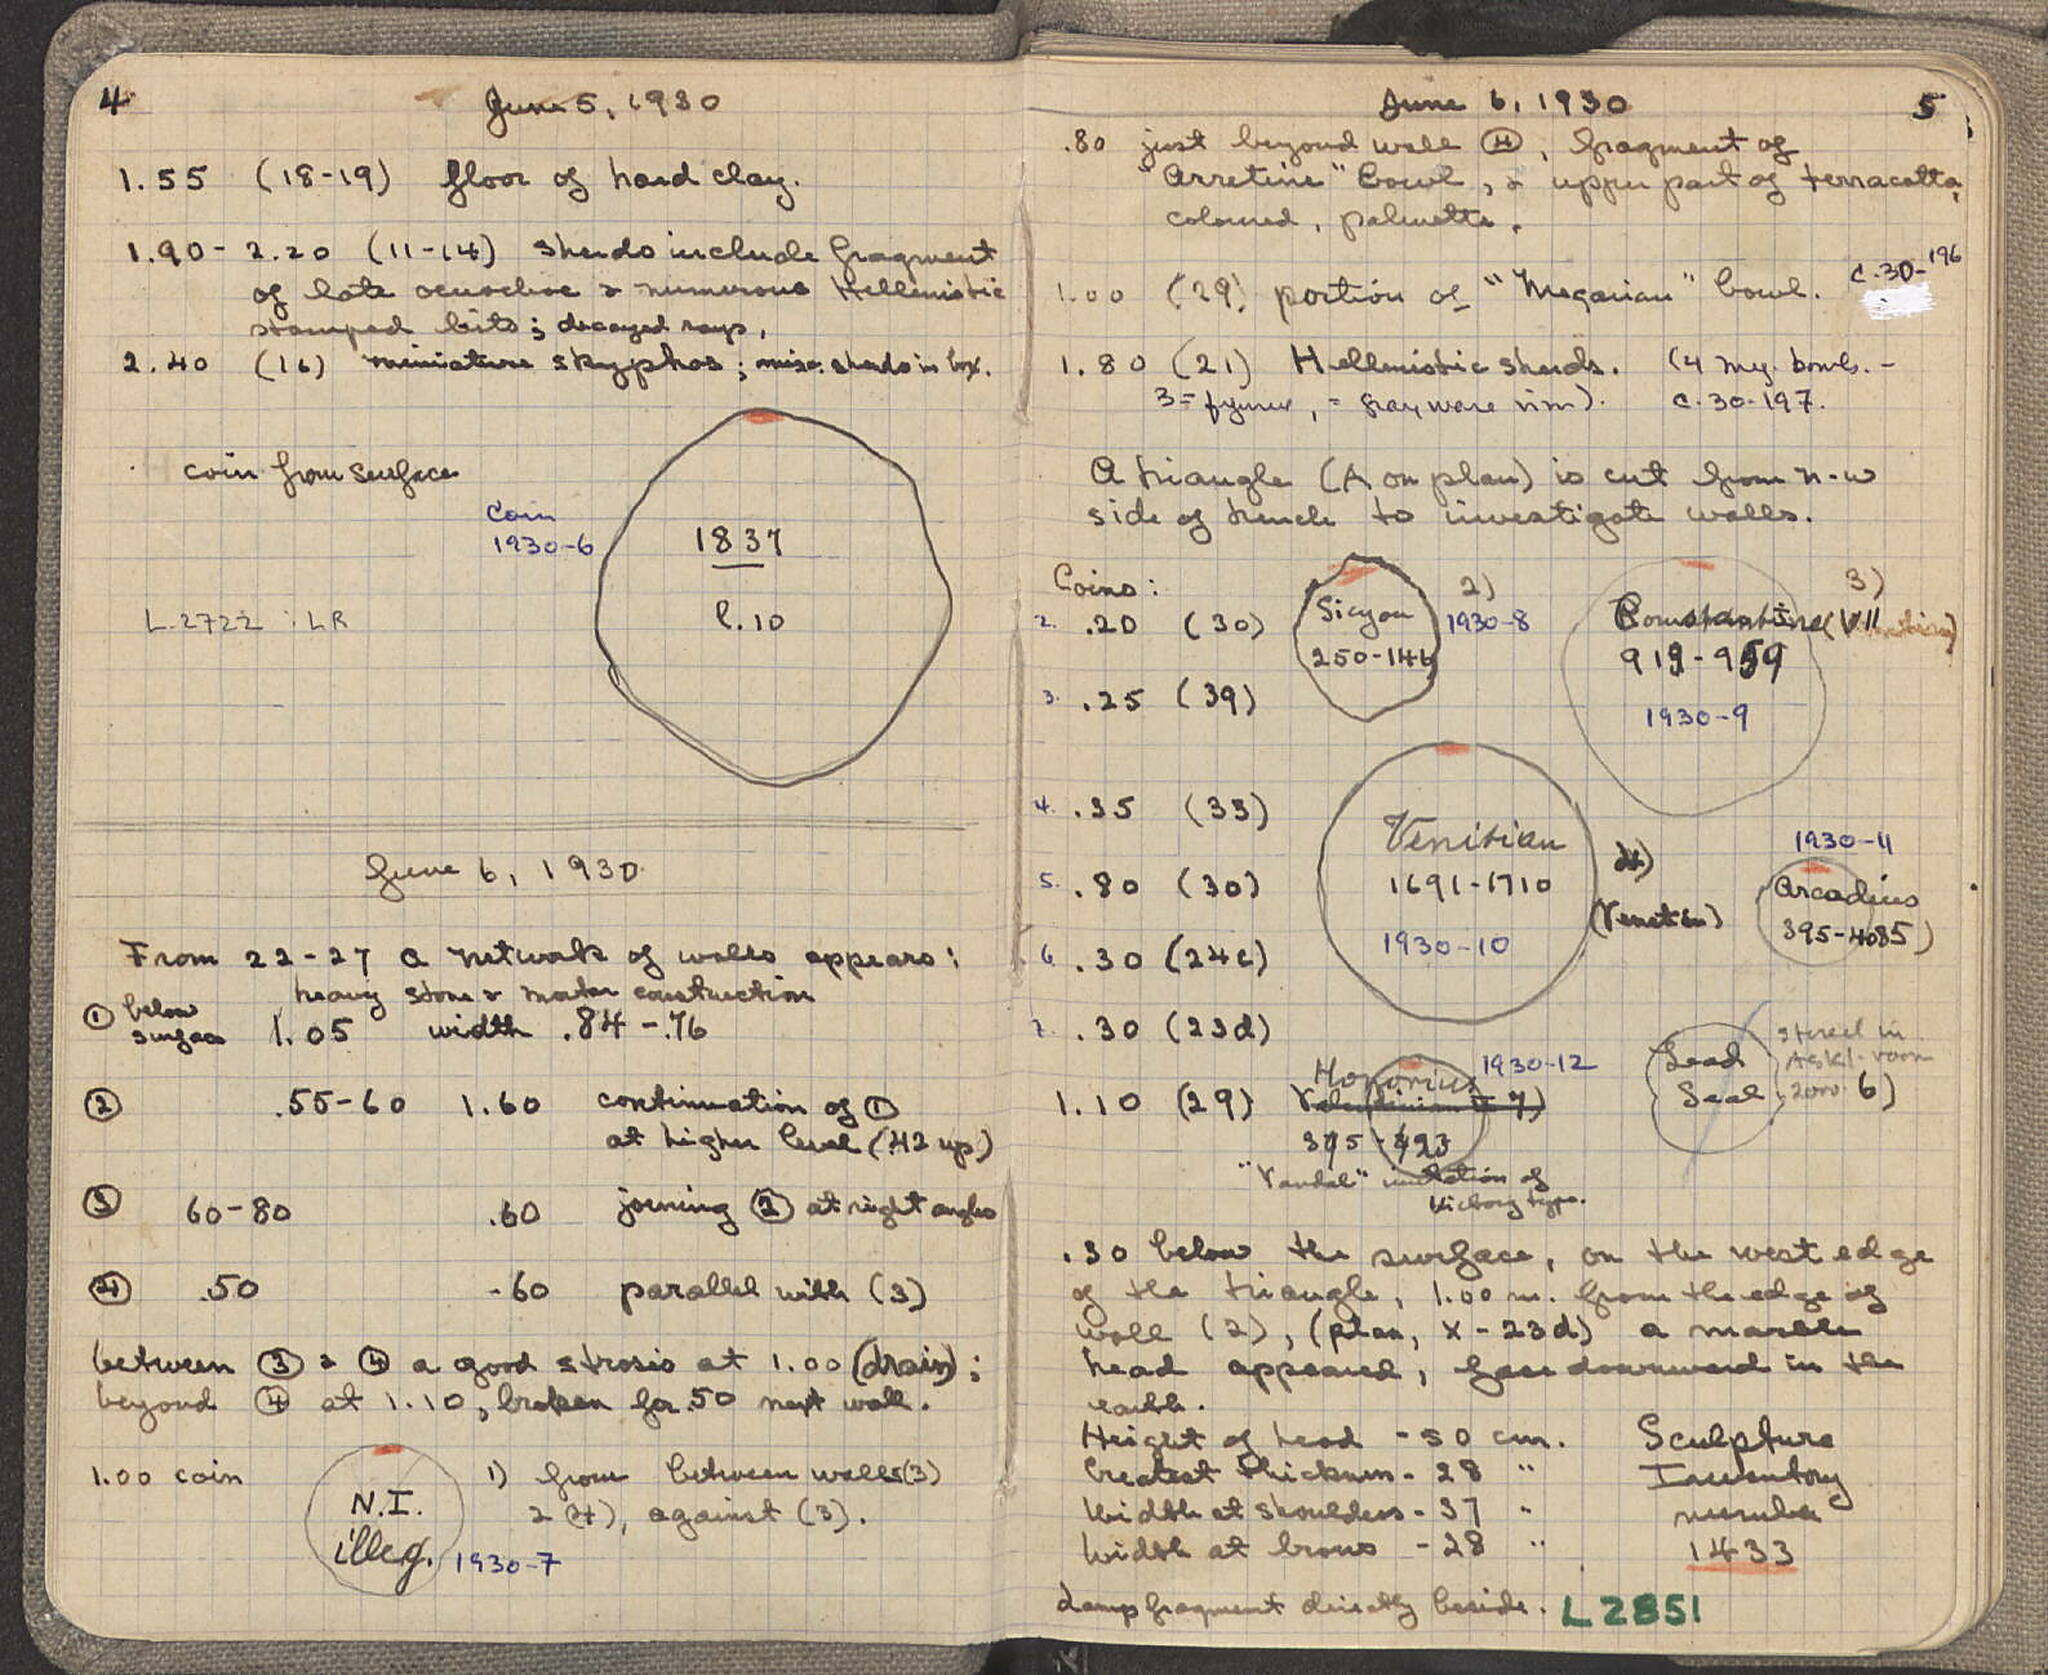 4
June 5, 1930
1.55 (18-19) floor of hard clay.
1.90 - 2.20 (11-14) Sherds include fragment
of late oenochoe & numerous Hellenistic
stamped bits; decayed rays,
2.40 (16) miniature skyphos; misc. sherds in box.
coin from surface
Coin
1930-6
1837
l.10
L.2722 : LR
June 6, 1930
From 22-27 a network of walls appears:
heavy stone & mortar construction
① below
surface 1.05 width .84 - .76
② .55-60 1.60 continuation of ①
at higher level (.42 up)
③ 60-80 .60 joining ② at right angles
④ .50 .60 parallel with (3)
between ③ & ④ a good strosis at 1.00 (drain);
beyond ④ at 1.10, broken for .50 next wall.
1.00 coin
N.I.
illeg.
1930-7
1) from between walls (3)
& (4), against (3).
June 6, 1930
5
.80 just beyond wall ④, fragment of
"Arretine" bowl, & upper part of terracotta,
coloured, palmette.
1.00 (29) portion of "Megarian" bowl. C.30-196
1.80 (21) Hellenistic sherds. (4 Meg. bowls. -
3 = figures, = gray ware rim). C.30-197.
A triangle (A on plan) is cut from n-w
side of trench to investigate walls.
Coins:
2. .20 (30)
Sicyon
250-146
2)
1930-8
3)
Constantine (VII
919-959
1930-9
3. .25 (39)
4. .35 (33)
Venitian
1691-1710
1930-10
4)
(Venetian)
5. .80 (30)
1930-11
Arcadius
395-408 5)
6. .30 (24c)
7. .30 (23d)
Lead
Seal
stored in
Askl. room
6)
1.10 (29)
Honorius
1930-12
Valentinian II 7)
395-423
"Vandal" imitation of
Victory type.
.30 below the surface, on the west edge
of the triangle, 1.00 m. from the edge of
wall (2), (plan, X - 23d) a marble
head appeared, face downward in the
earth.
Height of head - 50 cm.
Greatest thickness - 28 "
Width at shoulders - 37 "
Width at brows - 28 "
Sculpture
Inventory
number
1433
Lamp fragment directly beside. L2851